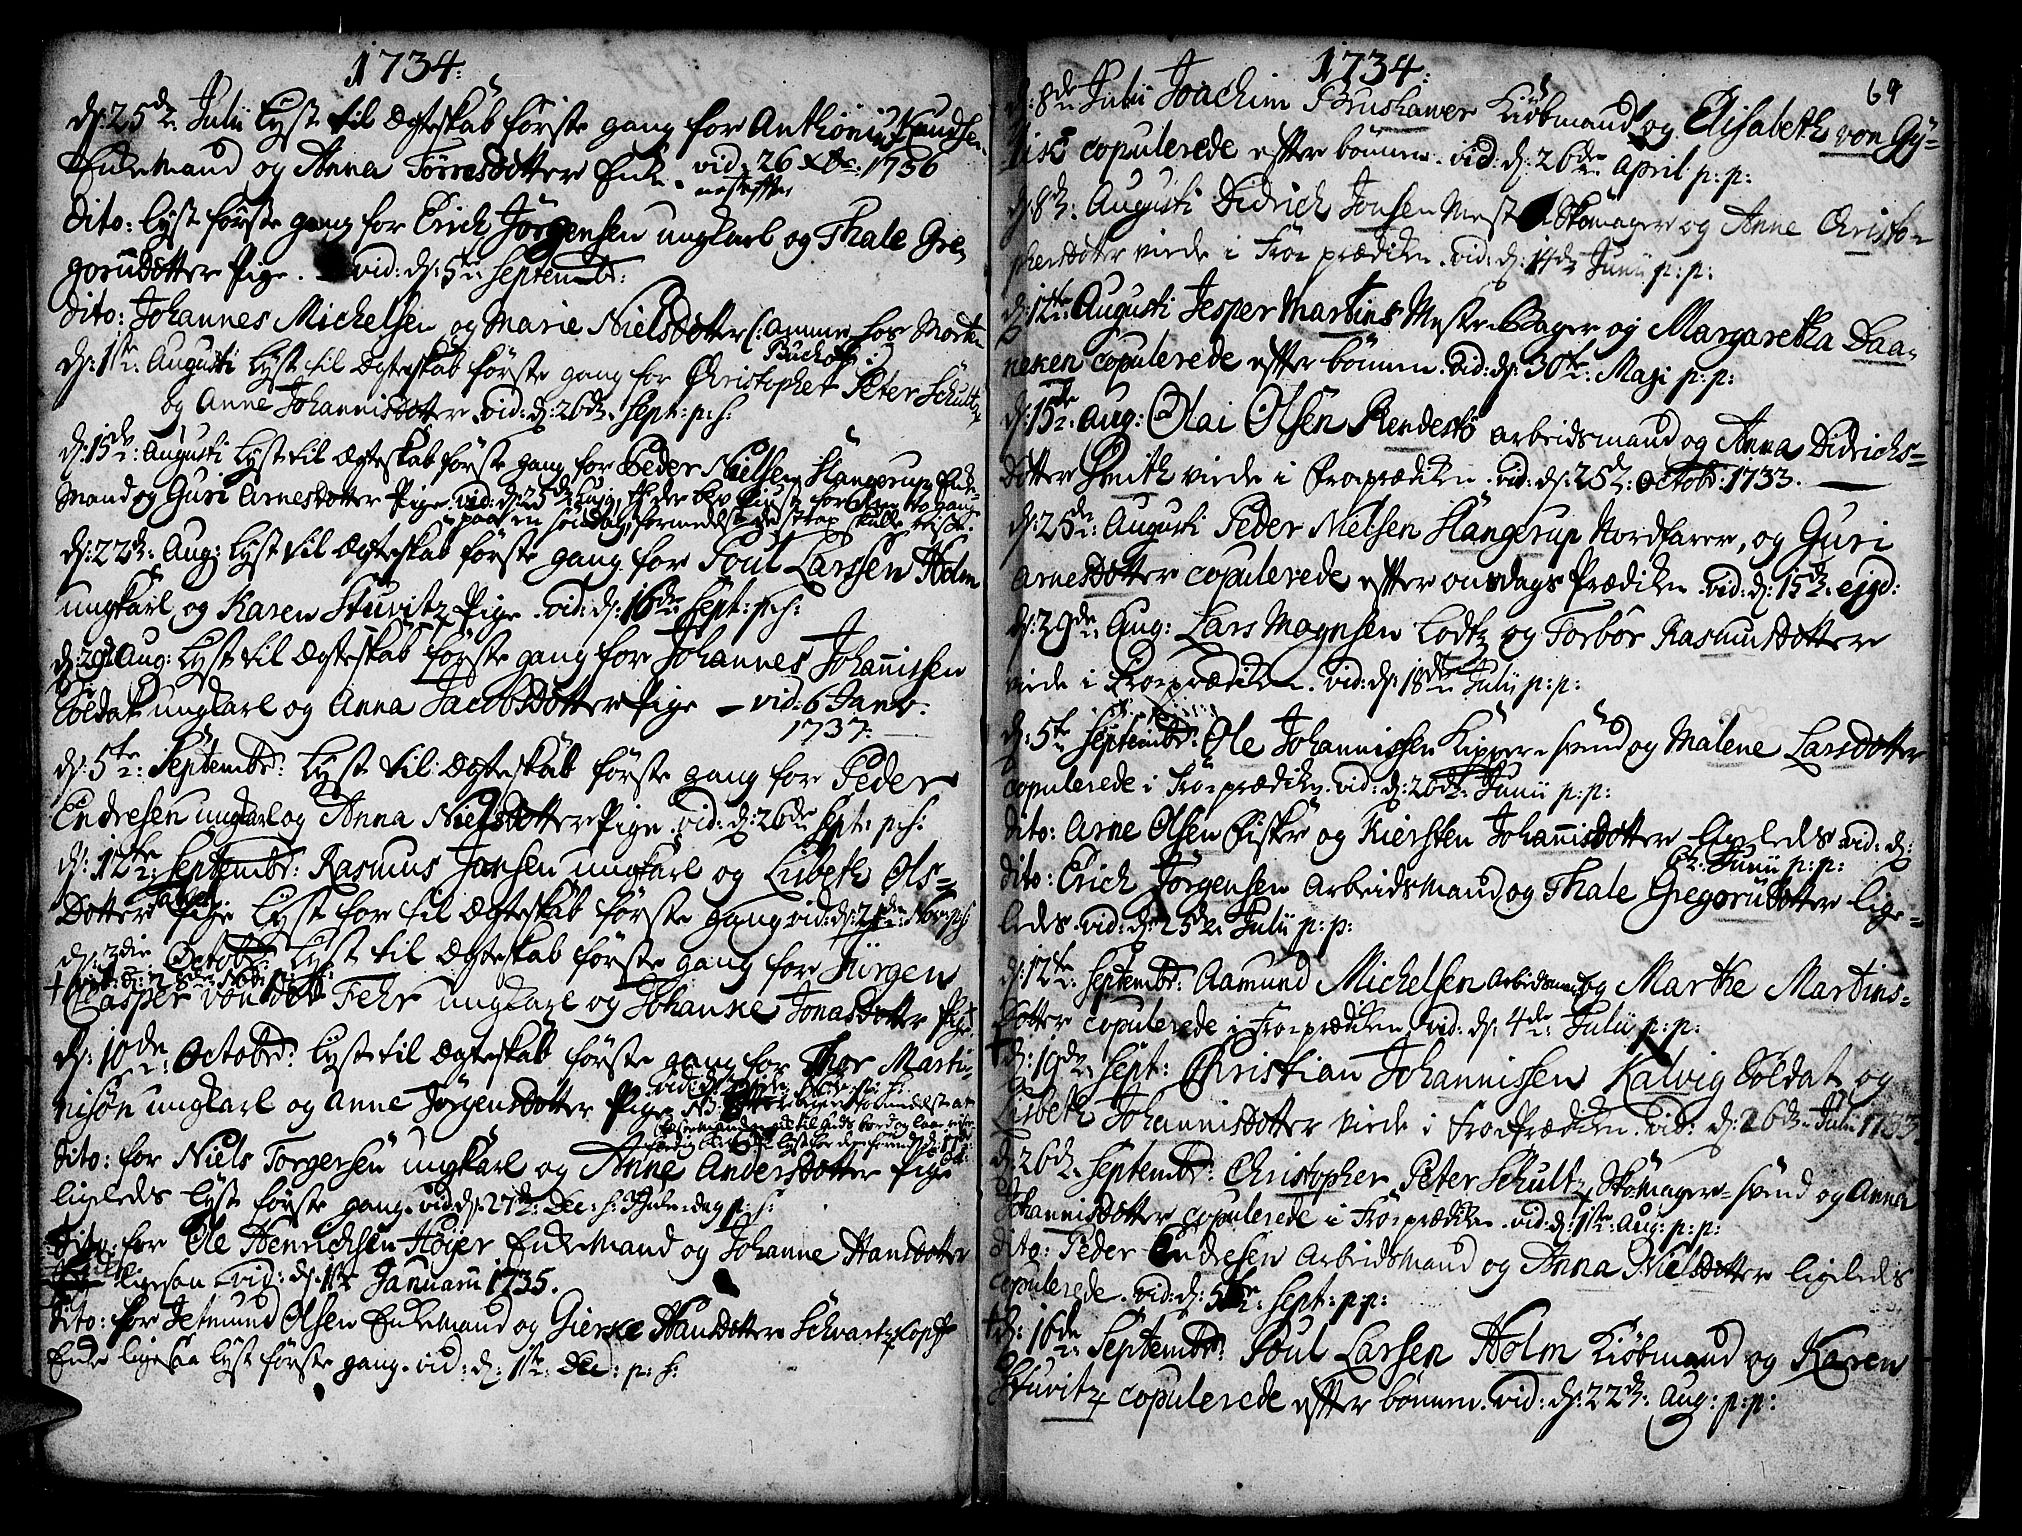 1734:
d: 25de Julij Lyst til Ægteskab første gang for Anthonius Knudsen
Enkemand og Anna Torresdotter Enke. vid: 26 Xbr: 1736
nestefter
Dito: lyst første gang for Erich Jörgensen ungkarl og Thale Gre-
gorudotter Pige. vid: d: 5te Septembr:
Dito: Johannes Michelsen og Marie Nielsdotter (: Amme hos Morten
Buchott :)
d: 1ste Augusti Lyst til Ægteskab første gang for Christopher Peter Schultz
og Anne Johannisdotter. vid: d: 26de Sept: p: h:
d: 15de Augusti Lyst til Ægteskab første gang for Peder Nielsen Slangerup Enke-
mand og Guri Arnesdotter Pige. vid: d: 25de Aug.
d: 22de Aug: Lyst til Ægteskab første gang for Poul Larssen Holm
ungkarl og Karen Stuvitz Pige. vid: d: 16de Sept: p: h:
d: 29de Aug: Lyst til Ægteskab første gang for Johannes Johannissen
Soldat ungkarl og Anna Jacobsdotter Pige – vid: 6 Janv:
1737:
d: 5te Septembr: Lyst til Ægteskab første gang for Peder
Endresen ungkarl og Anna Nielsdotter Pige. vid: d: 26de Sept: p: h:
d: 12te Septembr: Rasmus Jansen ungkarl og Lisbeth Ols-
dotter Pige Lyst for til Ægteskab første gang vid: d:
d: 3die Octobr: Lyst til Ægteskab første gang for Jürgen
Casper von der Fehr ungkarl og Johanne Jonasdotter Pige
d: 10de Octobr: Lyst til Ægteskab første gang for Thor Marti-
nison ungkarl og Anne Jørgensdotter Pige
Dito: for Niels Torgersen ungkarl og Anne Andersdotter Pige
ligeledes lyst første gang. vid: d: 27de Dec: h: 3 Jule-dag p: h:
Dito: for Ole Henrichsen Höyer Enkemand og Johanne Hansdotter
ligesaa vid: d: 1ste Januarii 1735.
Dito: for Jetmund Olsen Enkemand og Gierke Hansdotter Schvartzkopff
Enke ligesaa lyst første gang. vid: d: 1ste Dec: p: h:
1734:
69
d: 8de Julii Joachim Bruskawer Kiöbmand og Elisabeth von Gy-
copulerede efter bönnen. vid: d: 26de April p: p:
d: 8de Augusti Didrich Jonsen Mest Skomager og Anne Christo-
phersdotter viede i Froprædiken. vid: d: 14de Junii p: p:
d: 12te Augusti Jesper Martins Mester Bager og Margaretha Daa-
neken copulerede efter bönnen. vid: d: 30te Maji p: p:
d: 15de Aug: Olai Olsen Rendestö arbeidsmand og Anna Didrichs-
dotter Smith viede i Froprædiken. vid: d: 25de Octobr: 1733.
d: 25de Augusti Peder Nielsen Slangerup Nordfarer, og Guri
Arnesdotter copulerede efter onsdags Prædiken. vid: d: 15de ejsd:
d: 29de Aug: Lars Mognsen Lodtz og Torbor Rasmusdotter
viede i Froeprædiken. vid: d: 18de Julii p: p:
d: 5te Septembr: Ole Johannissen Kipper-svend og Malene Larsdotter
copulerede i Froeprædiken. vid: d: 26de Junii p: p:
Dito: Arne Olsen Fisker og Kiersten Johannisdotter ligeledes vid: d:
Junii p: p:
Dito: Erich Jørgensen Arbeidsmand og Thale Gregorudotter lige-
ledes. vid: d: 25de Julii p: p:
d: 12te Septembr: Aamund Michelsen Arbeidsmand og Marthe Martins-
dotter copulerede i Froprædiken. vid: d: 4de Julii p: p:
d: 19de Sept: Christian Johannissen Kalvig Soldat og
Lisbeth Johannisdotter viede i FroePrædiken. vid: d: 26de Julii 1733.
d: 26de Septembr: Christopher Peter Schultz Skomager-svend og Anna
Johannisdotter copulerede i Froeprædiken. vid: d: 1ste Aug: p: p:
Dito: Peder Endresen Arbeidsmand og Anna Nielsdotter ligeledes
copulerede. vid: d: 5te Sept: p: p:
d: 16de Septembr: Poul Larsen Holm Kiöbmand og Karen
Stuvitz copulerede efter bönnen. vid: d: 22de Aug: p: p: